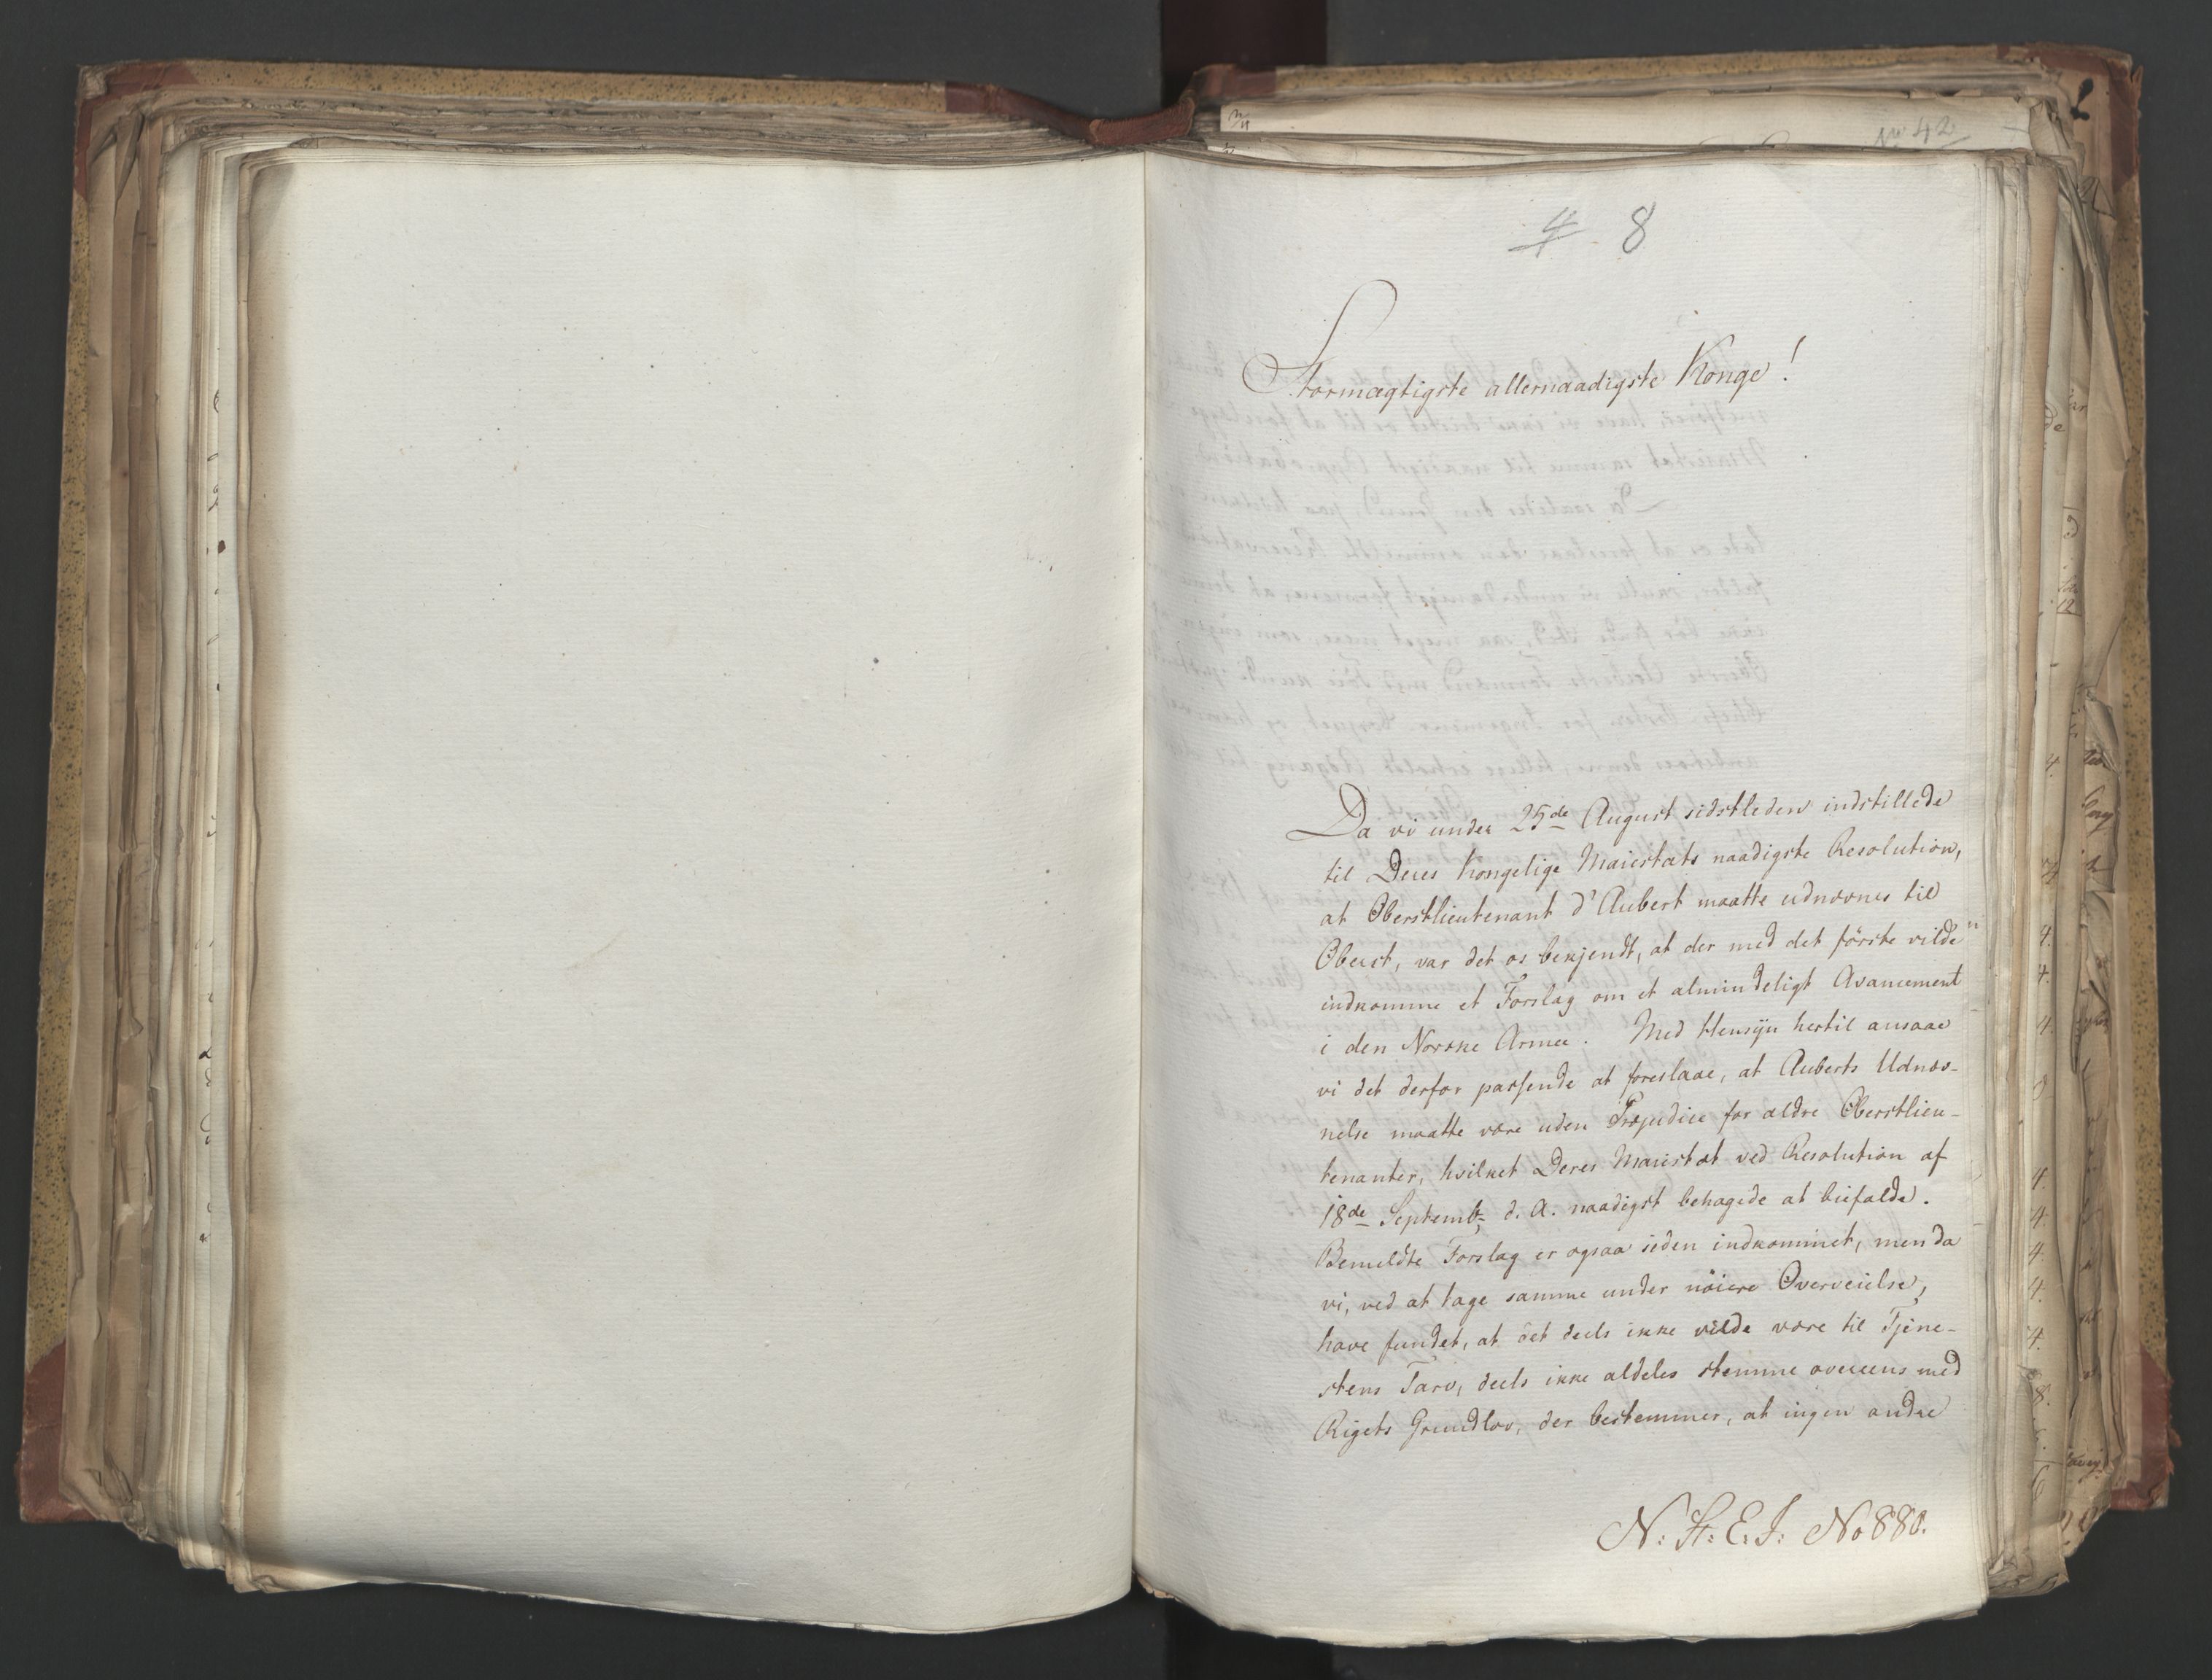 No 42
4 8
Stormægtigste allernaadigste Konge!
Da vi under 25de August sidstleden indstillede
til Deres Kongelige Maiestæts naadigste Resolution,
at Oberstlieutenant d'Aubert maatte udnævnes til
Oberst, var det os bekjendt, at der med det förste vilde
indkomme et Forslag om et almindeligt Avancement
i den Norske Armee. Med Hensyn hertil ansaae
vi det derfor passende at foreslaae, at Auberts Udnæv-
nelse maatte være uden Præjudice for ældre Oberstlieu-
tenanter, hvilket Deres Maiestæt ved Resolution af
18de Septembr d. A. naadigst behagede at biefalde.
Bemeldte Forslag er ogsaa siden indkommet, men da
vi, ved at tage samme under nöiere Overveielse,
have fundet, at det deels ikke vilde være til Tjene-
stens Tarv, deels ikke aldeles stemme overeens med
Rigets Grundlov, der bestemmer, at ingen andre
N: St: E: J: No 880.